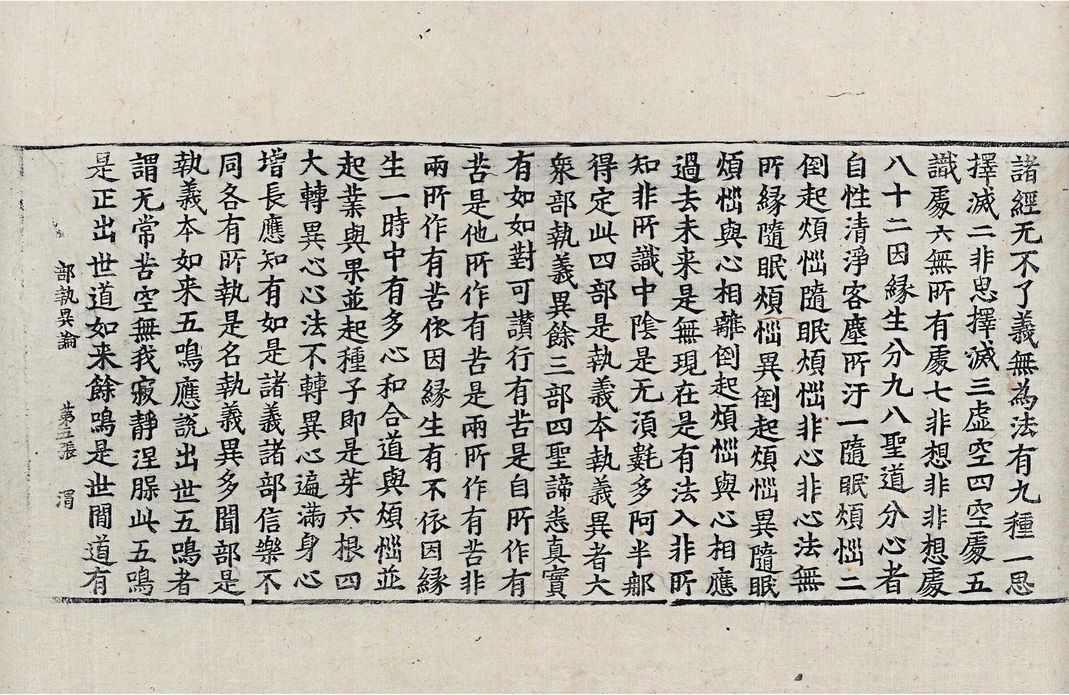 諸經无不了義無為法有九種一思
擇滅二非思擇滅三虛空四空處五
識處六無所有處七非想非非想處
八十二因緣生分九八聖道分心者
自性清淨客塵所汙一隨眠煩惱二
倒起煩惱隨眠煩惱非心非心法無
所緣隨眠煩惱異倒起煩惱異隨眠
煩惱與心相離倒起煩惱與心相應
過去未来是無現在是有法入非所
知非所識中陰是无湏㲲多阿半那
得定此四部是執義本執義異者大
衆部執義異餘三部四聖諦悉真實
有如如對可讃行有苦是自所作有
苦是他所作有苦是兩所作有苦非
兩所作有苦依因緣生有不依因緣
生一時中有多心和合道與煩惱並
起業與果並起種子即是芽六根四
大轉異心心法不轉異心遍滿身心
增長應知有如是諸義諸部信樂不
同各有所執是名執義異多聞部是
執義本如来五鳴應說出世五鳴者
謂无常苦空無我寂靜涅槃此五鳴
是正出世道如来餘鳴是世間道有
部執異論　第五張　渭